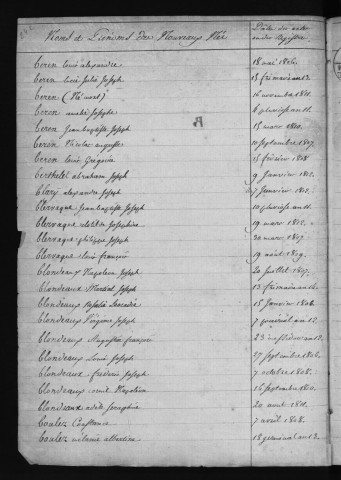 Noms et Prénoms des Nouveaux Nés
Date des actes
aux dits Registres
Ceren louis alexandre 18 mai 1806.
Ceren louis Julie Joseph 15 frimaire an 12.
Ceren (Né mort) 16 novembre 1811.
Ceren amélie Josephe 8 pluviose an 11.
Ceren Jean baptiste Joseph 15 mars 1810.
Ceren Nicolas auguste 10 septembre 1807.
Ceren louis Grégoire 15 février 1808
Certhelet abraham Joseph 9 Janvier 1812.
Clary alexandre Joseph 27 Janvier 1810.
Clervaque Jean baptiste Joseph 10 pluviose an 11.
Clervaque Josephine 19 mars 1812.
Clervaque philippe Joseph 30 mars 1807.
Clervaque louis françois 19 août 1809.
Clondeaux Napoléon Joseph 20 Juillet 1807.
Clondeaux Martial Joseph 13 frimaire an 12.
Clondeaux Rosalie 15 Janvier 1806.
Clondeaux Virginie Joseph 7 prairial an 12.
Clondeaux Augustin françois 23 messidor an 13.
Clondeaux Louis Joseph 17 septembre 1806.
Clondeaux frédéric Joseph 7 octobre 1808.
Clondeaux Napoléon 16 septembre 1810.
Clondeaux adèle Séraphine 20 août 1811.
Coulez Constance 7 avril 1808.
Coulez mélanie albertine 18 germinal an 13.